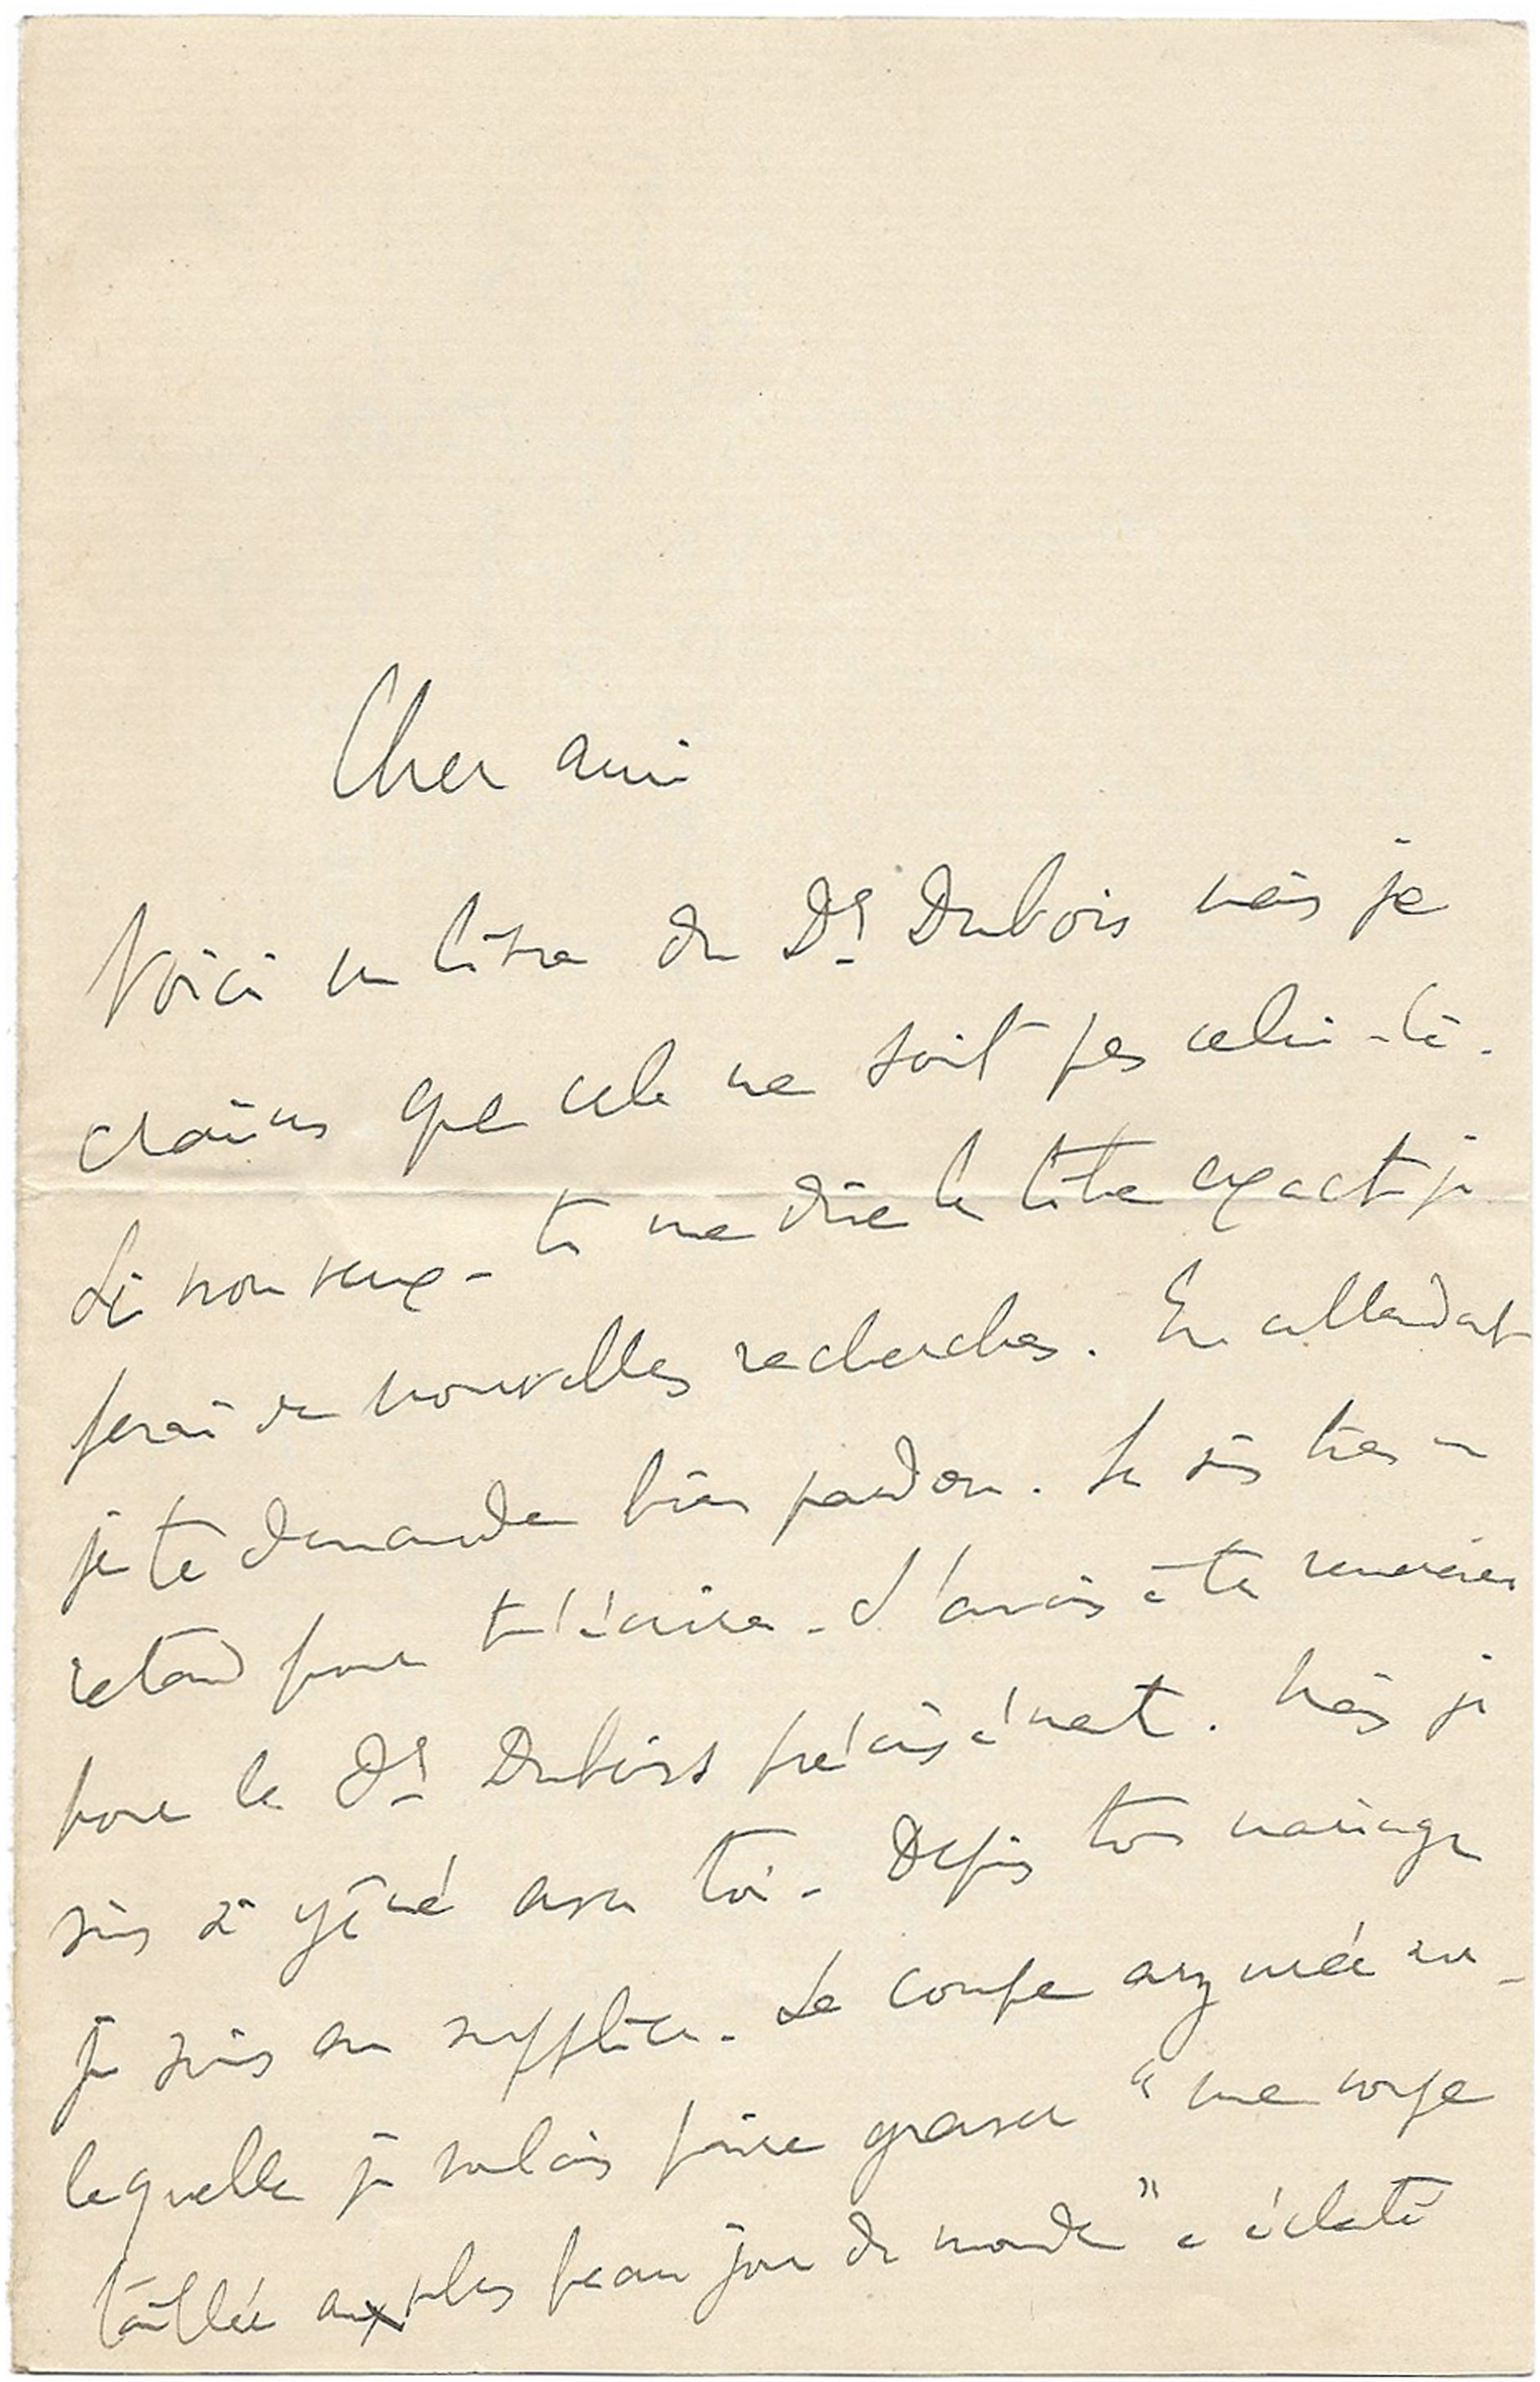 Cher ami
Voici un livre du Dr Dubois mais je
crains que cela ne soit pas celui-là.
Si non veux-tu me dire le titre exact je
ferai de nouvelles recherches. En attendant
je te demande bien pardon. Je suis très en
retard pour t'écrire. J'avais à te remercier
pour le Dr Dubois précisément. Mais je
suis si gêné avec toi. Depuis ton mariage
je suis au supplice. La coupe argentée sur
laquelle je voulais faire graver "une coupe
taillée au plus beau jour du monde" a éclaté